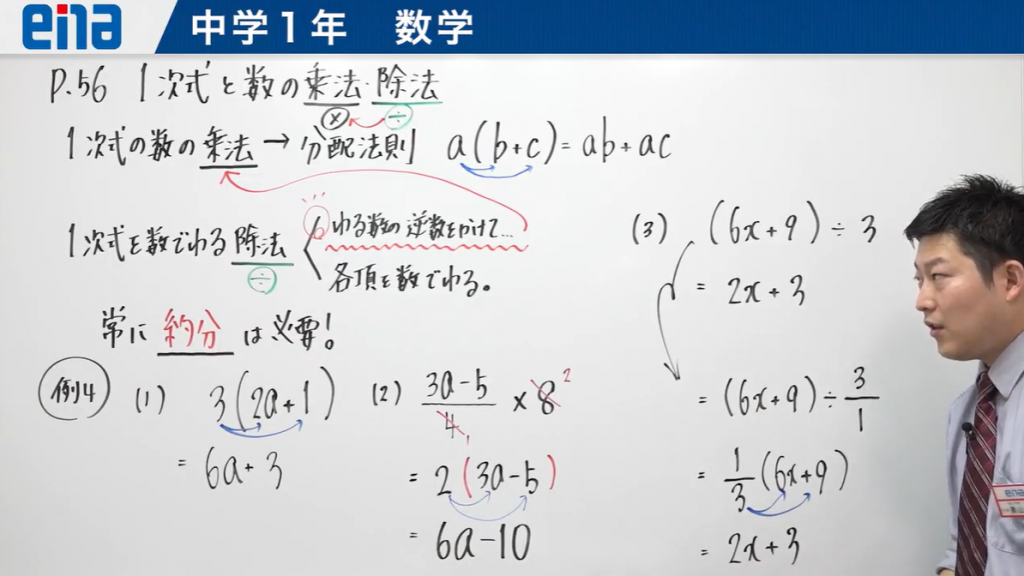 ena 中学1年 数学
P.56 1次式と数の乗法・除法
× ÷
1次式の数の乗法→分配法則 a(b+c)=ab+ac
1次式を数でわる除法
÷
わる数の逆数をかけて…
各項を数でわる。
常に約分は必要!
例4
(1) 3(2a+1)
=6a+3
(2) (3a-5)/4 × 8 2
1
=2(3a-5)
=6a-10
(3) (6x+9)÷3
=2x+3
=(6x+9)÷3/1
=1/3(6x+9)
=2x+3
ena